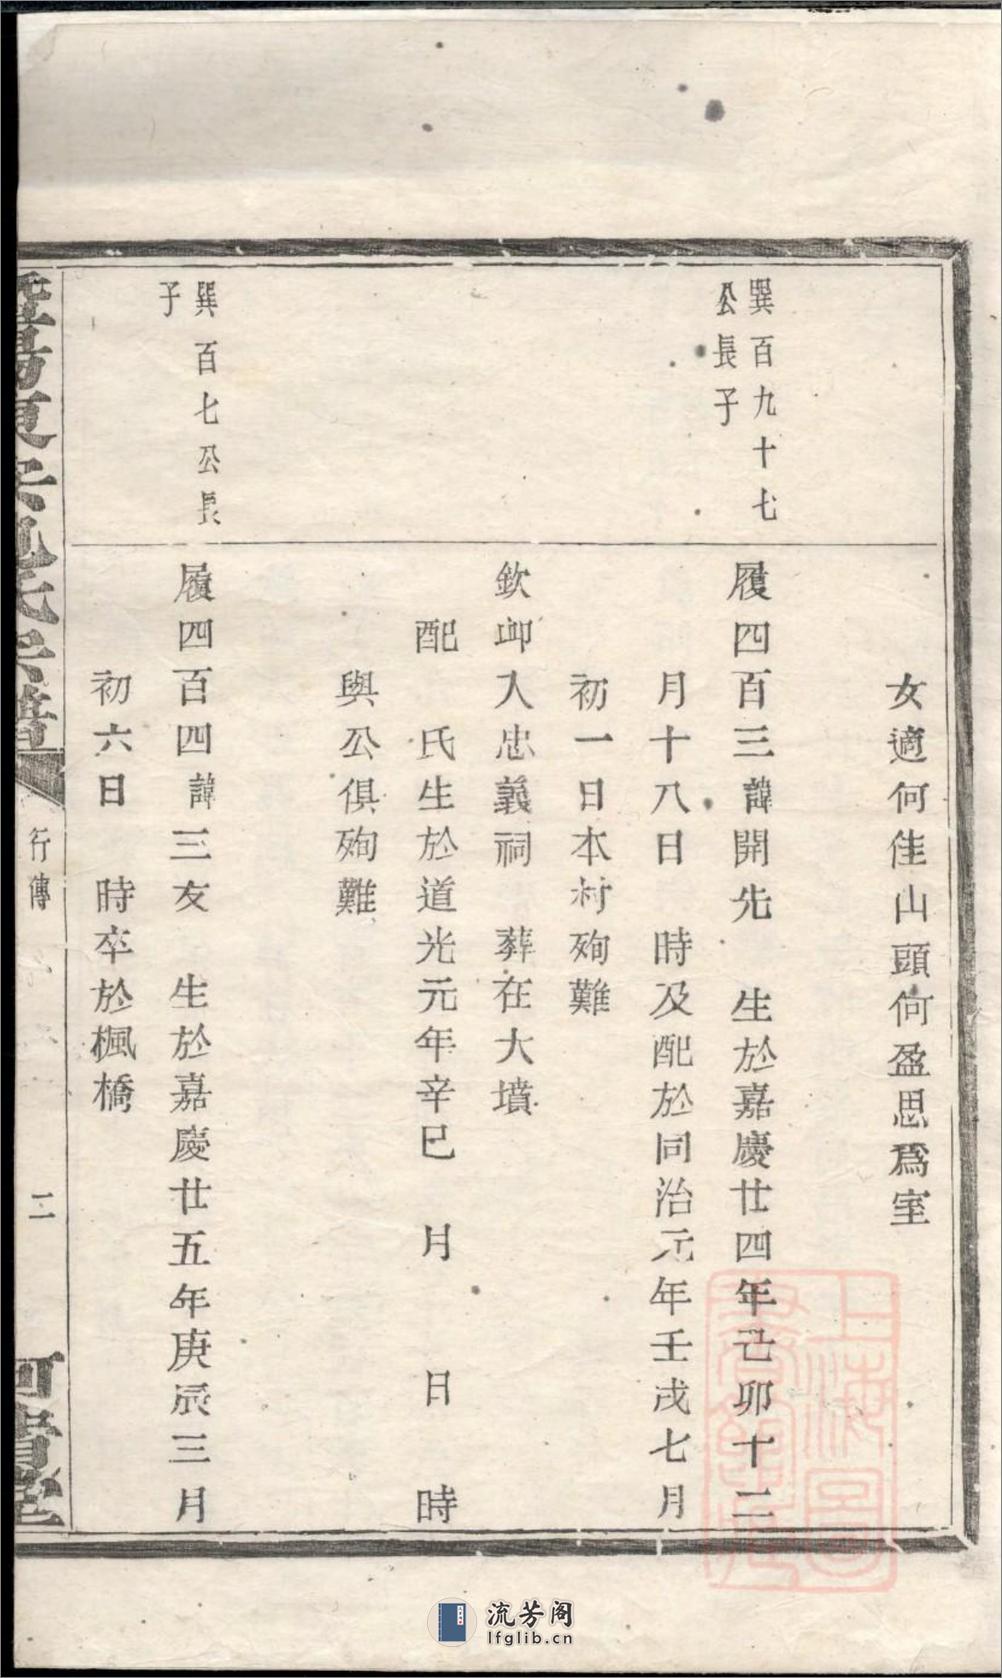 女適何佳山頭何盈思為室
巽百九十七
公長子
履四百三諱開先 生於嘉慶廿四年己卯十二
月十八日 時及配於同治元年壬戌七月
初一日本村殉難
欽卹入忠義祠 葬在大墳
配 氏生於道光元年辛巳 月 日 時
與公俱殉難
巽百七公長
子
履四百四諱三友 生於嘉慶廿五年庚辰三月
初六日 時卒於楓橋
行傳
二
上海圖
書館藏
流芳阁
lfglib.cn